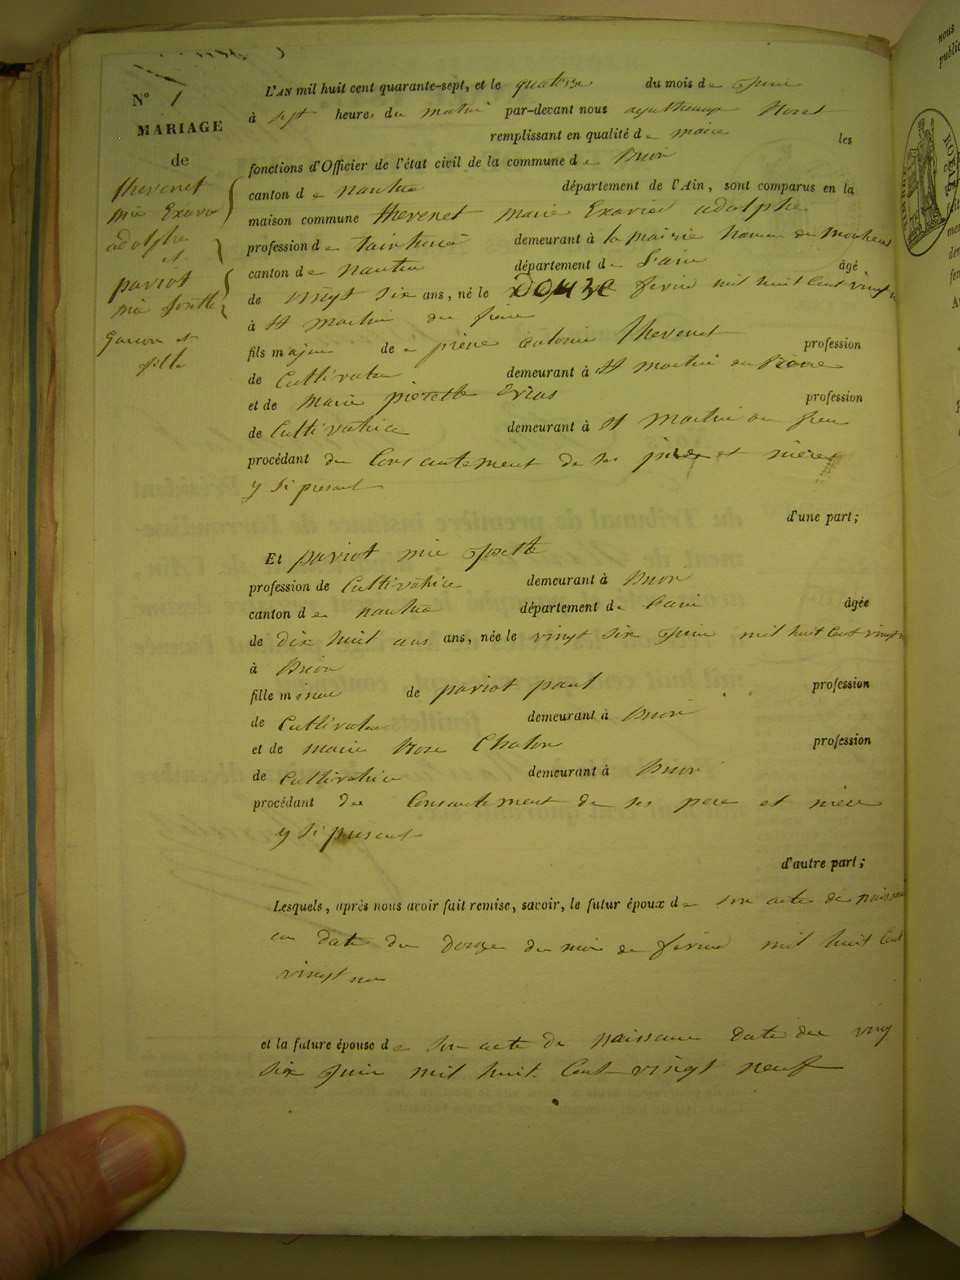 N° 1
MARIAGE
de
thevenet
mie Exavié
adolphe
et
pariot
mie josette
garcon et
fille
L'AN mil huit cent quarante-sept, et le quatorze du mois de juin
à sept heure du matin par-devant nous Moret
remplissant en qualité de maire les
fonctions d'Officier de l'état civil de la commune de Brion
canton de nantua département de l'Ain, sont comparus en la
maison commune thevenet marie Exavié adolphe
profession de demeurant à la
canton de nantua département de l'ain âgé
de vingt six ans, né le douze fevrié mil huit cent vingt
à St martin du freine
fils majeur de pierre antoine thevenet profession
de Cultivateur demeurant à St martin du
et de marie pierrette profession
de Cultivatrice demeurant à St martin du
procédant du Consentement de ses père et mère
y si present
d'une part;
Et pariot mie josette
profession de Cultivatrice demeurant à Brion
canton de nantua département de l'ain âgée
de dix huit ans ans, née le vingt six juin mil huit cent vingt
à Brion
fille mineure de pariot paul profession
de Cultivateur demeurant à Brion
et de marie Rose Chaton profession
de Cultivatrice demeurant à Brion
procédant du Consentement de ses pere et mere
y si present
d'autre part;
Lesquels, après nous avoir fait remise, savoir, le futur époux de son acte de naissance
en date du douze du mois de fevrié mil huit cent
vingt un
et la future épouse de son acte de naissance date du ving
six juin mil huit Cent vingt neuf